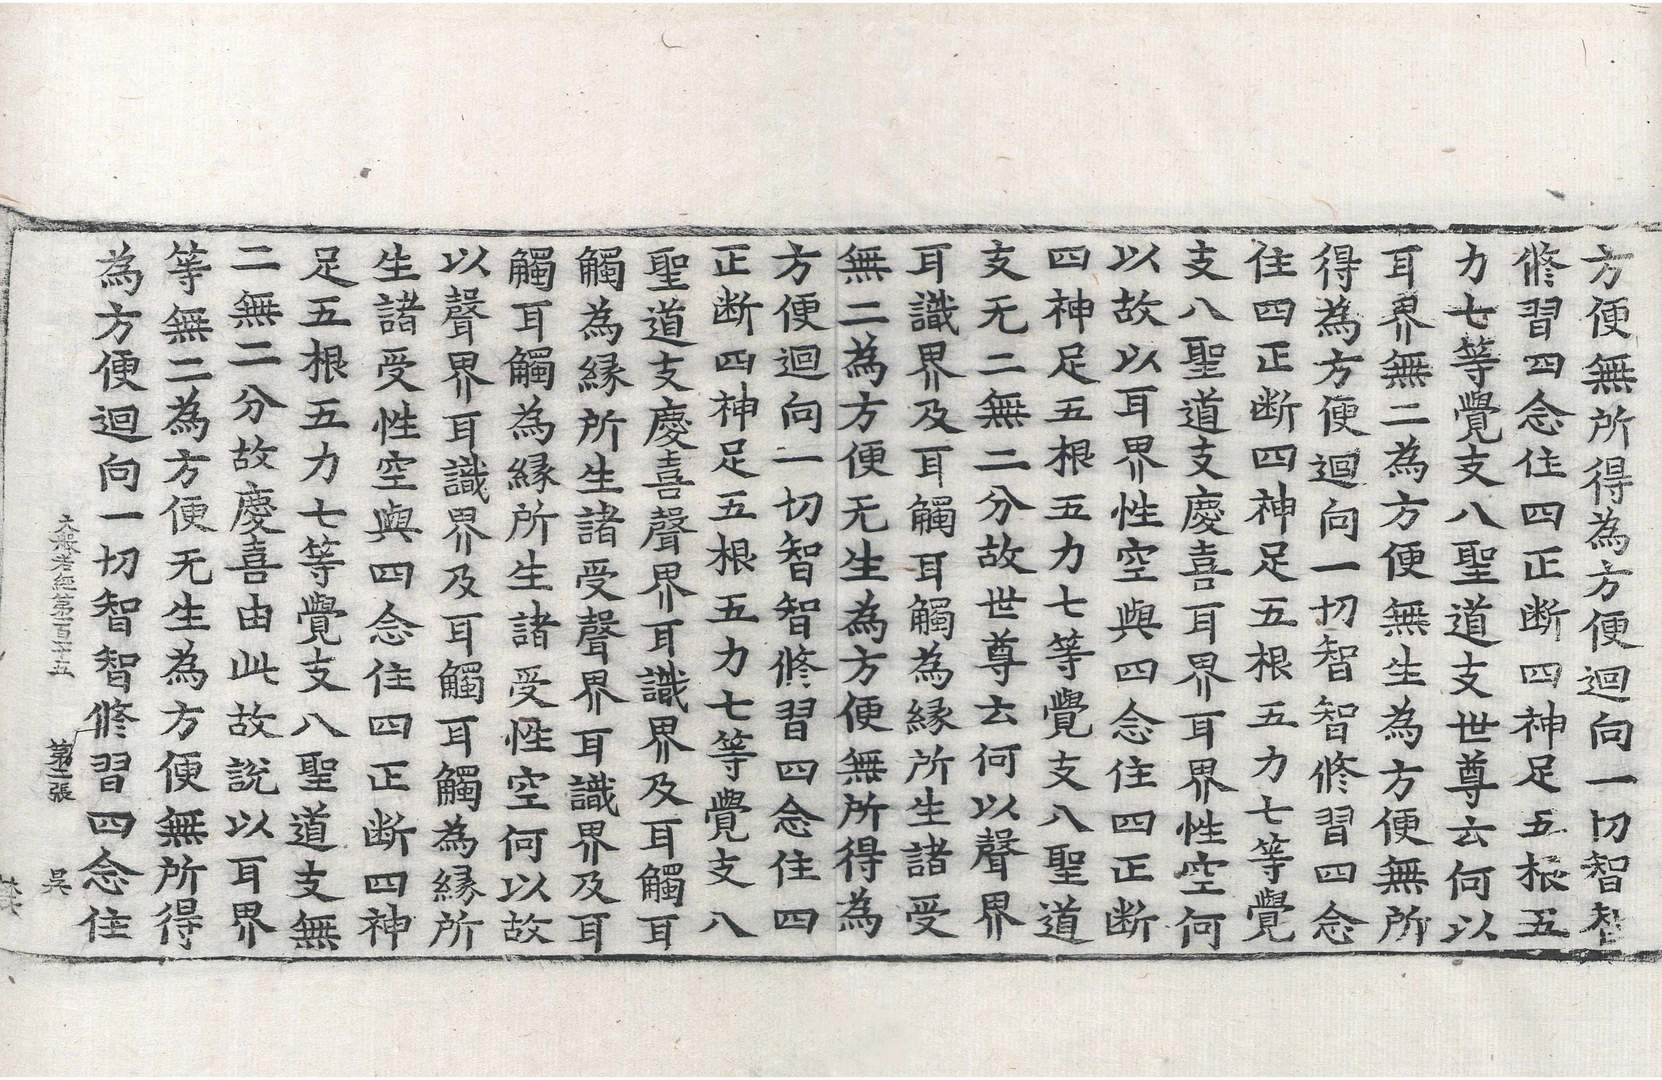 方便無所得為方便迴向一切智智
修習四念住四正断四神足五根五
力七等覺支八聖道支世尊云何以
耳界無二為方便無生為方便無所
得為方便迴向一切智智修習四念
住四正断四神足五根五力七等覺
支八聖道支慶喜耳界耳界性空何
以故以耳界性空與四念住四正断
四神足五根五力七等覺支八聖道
支无二無二分故世尊云何以聲界
耳識界及耳觸耳觸為緣所生諸受
無二為方便无生為方便無所得為
方便迴向一切智智修習四念住四
正断四神足五根五力七等覺支八
聖道支慶喜聲界耳識界及耳觸耳
觸為緣所生諸受聲界耳識界及耳
觸耳觸為緣所生諸受性空何以故
以聲界耳識界及耳觸耳觸為緣所
生諸受性空與四念住四正断四神
足五根五力七等覺支八聖道支無
二無二分故慶喜由此故說以耳界
等無二為方便无生為方便無所得
為方便迴向一切智智修習四念住
大般若經第一百二十五 第二張 吳